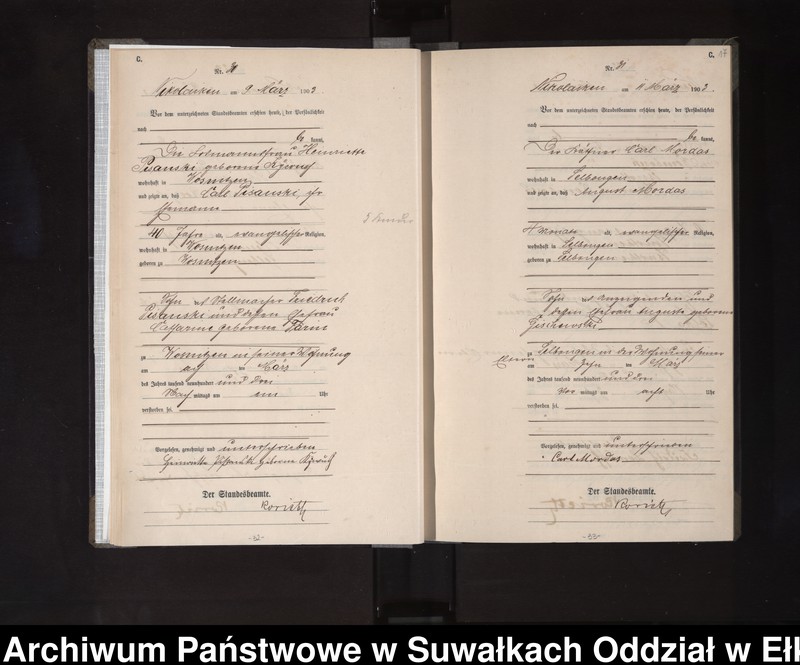 C.
Nr. 31
Nikolaiken am 9. März 1903
Vor dem unterzeichneten Standesbeamten erschien heute, der Persönlichkeit
nach
be kannt,
Henriette
Pisanski geborene
wohnhaft in Wosnitzen
und zeigte an, daß Carl Pisanski, ihr
Ehemann
40 Jahre alt, evangelischer Religion,
wohnhaft in Wosnitzen
geboren zu Wosnitzen
Sohn des Stellmacher Friedrich
Pisanski und dessen Ehefrau
Catharine geborene
zu Wosnitzen in seiner Wohnung
am acht ten März
des Jahres tausend neunhundert und drei
Nach mittags um ein Uhr
verstorben sei.
Vorgelesen, genehmigt und unterschrieben
Henriette Pisanski geborene
Der Standesbeamte.
- 32 -
C.
Nikolaiken am 11 März 1903
Vor dem unterzeichneten Standesbeamten erschien heute, der Persönlichkeit
nach
be kannt,
Der Käthner Carl Mordas
wohnhaft in Selbongen
und zeigte an, daß August Mordas
alt, evangelischer Religion,
wohnhaft in Selbongen
geboren zu Selbongen
Sohn des Anzeigenden und
dessen Ehefrau Auguste geborene
zu Selbongen in der Wohnung seiner
Eltern
am zehn ten März
des Jahres tausend neunhundert und drei
Vor mittags um acht Uhr
verstorben sei.
Vorgelesen, genehmigt und unterschrieben
Carl Mordas
Der Standesbeamte.
- 33 -
Archiwum Państwowe w Suwałkach Oddział w Ełk